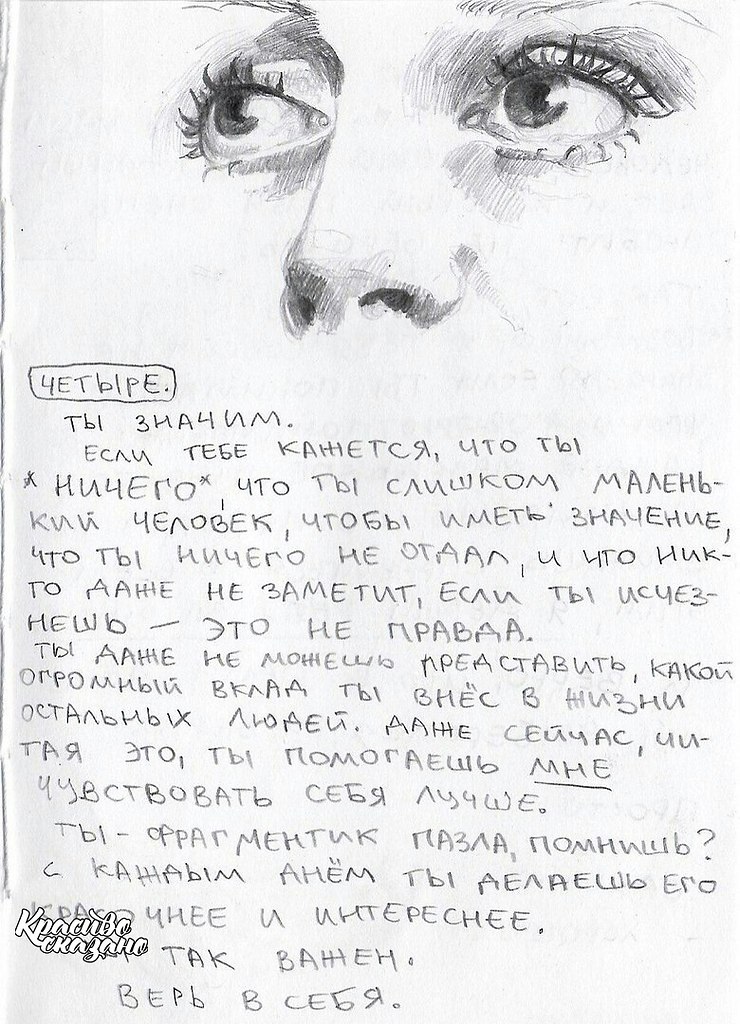 ЧЕТЫРЕ.
ТЫ ЗНАЧИМ.
ЕСЛИ ТЕБЕ КАЖЕТСЯ, ЧТО ТЫ
*НИЧЕГО*, ЧТО ТЫ СЛИШКОМ МАЛЕНЬ-
КИЙ ЧЕЛОВЕК, ЧТОБЫ ИМЕТЬ ЗНАЧЕНИЕ,
ЧТО ТЫ НИЧЕГО НЕ ОТДАЛ, И ЧТО НИК-
ТО ДАЖЕ НЕ ЗАМЕТИТ, ЕСЛИ ТЫ ИСЧЕЗ-
НЕШЬ — ЭТО НЕ ПРАВДА.
ТЫ ДАЖЕ НЕ МОЖЕШЬ ПРЕДСТАВИТЬ, КАКОЙ
ОГРОМНЫЙ ВКЛАД ТЫ ВНЁС В ЖИЗНИ
ОСТАЛЬНЫХ ЛЮДЕЙ. ДАЖЕ СЕЙЧАС, ЧИ-
ТАЯ ЭТО, ТЫ ПОМОГАЕШЬ МНЕ
ЧУВСТВОВАТЬ СЕБЯ ЛУЧШЕ.
ТЫ - ФРАГМЕНТИК ПАЗЛА, ПОМНИШЬ?
С КАЖДЫМ ДНЁМ ТЫ ДЕЛАЕШЬ ЕГО
КРАСОЧНЕЕ И ИНТЕРЕСНЕЕ.
Красиво
сказано
ТАК ВАЖЕН.
ВЕРЬ В СЕБЯ.